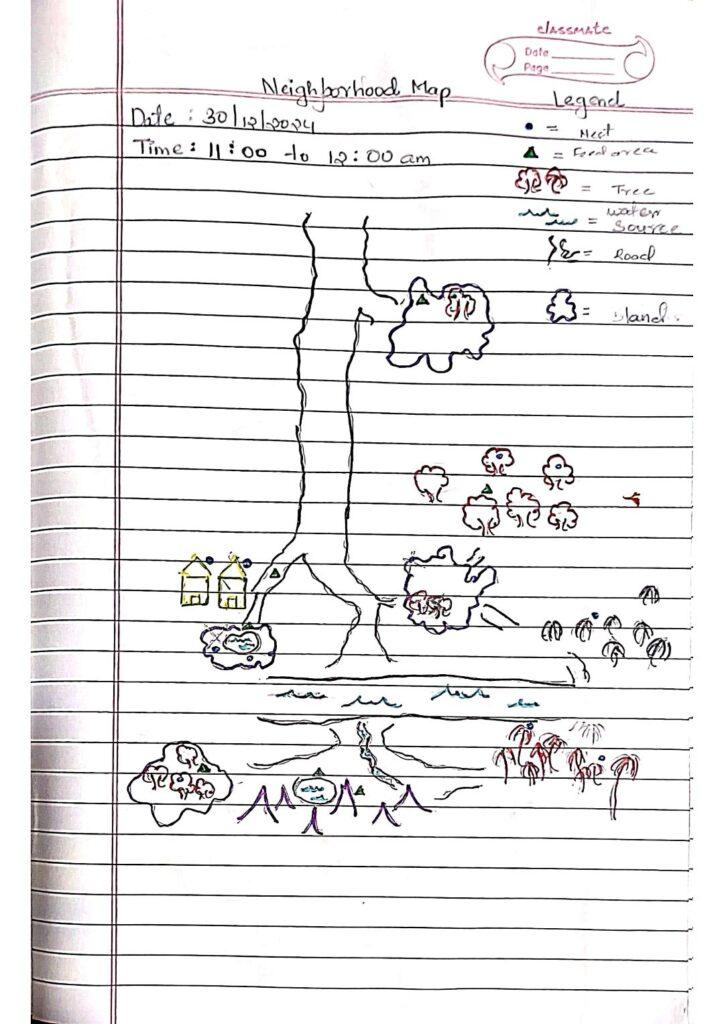 classmate
Date
Page
Neighborhood Map
Legend
Date : 30/12/2024
Time : 11:00 to 12:00 am
= Nest
= Feed area
= Tree
= water
source
= Road
= Island